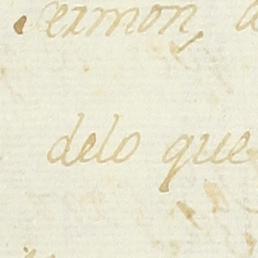 sermon,
delo que